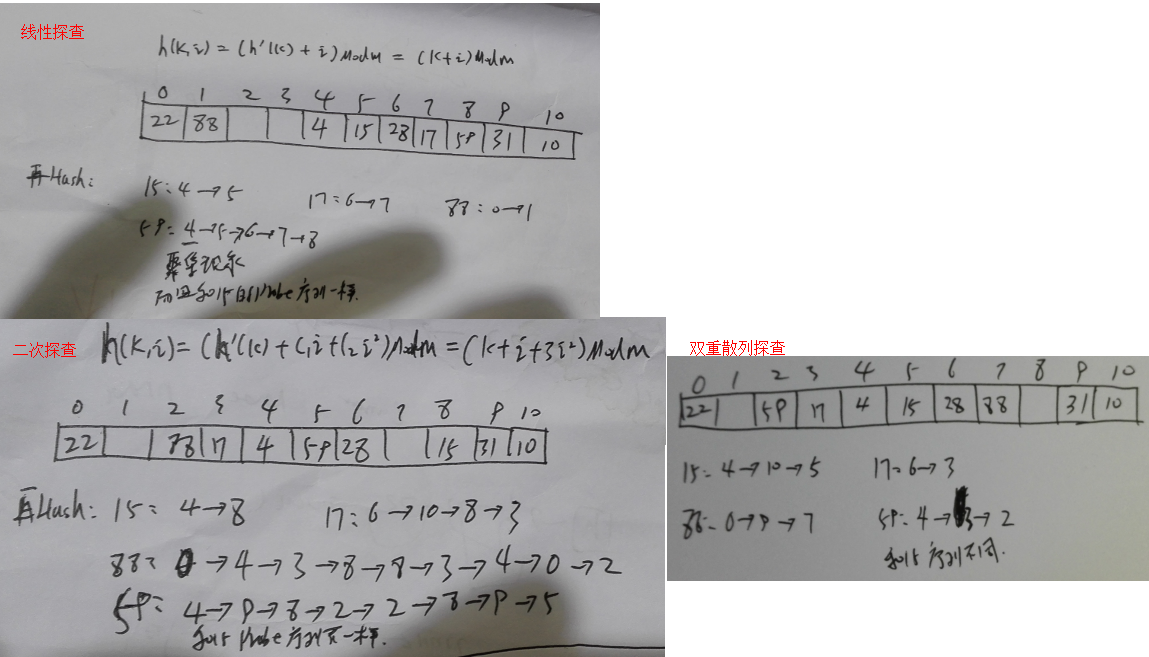 线性探查
h(k,i) = (h'(k) + i) Mod m = (k+i) Mod m
0 1 2 3 4 5 6 7 8 9 10
22 88 4 15 28 17 59 31 10
再Hash:
15: 4→5 17: 6→7 88: 0→1
59: 4→5→6→7→8
聚集现象
而且和15的Probe序列一样.
二次探查
h(k,i) = (h'(k) + C₁i + C₂i²) Mod m = (k+i+3i²) Mod m
0 1 2 3 4 5 6 7 8 9 10
22 88 17 4 59 28 15 31 10
再Hash: 15: 4→8 17: 6→10→8→3
88: 0→4→3→8→8→3→4→0→2
59: 4→9→8→2→2→8→9→5
和15 Probe序列不一样.
双重散列探查
0 1 2 3 4 5 6 7 8 9 10
22 59 17 4 15 28 88 31 10
15: 4→10→5 17: 6→3
88: 0→9→7 59: 4→3→2
和15序列不同.